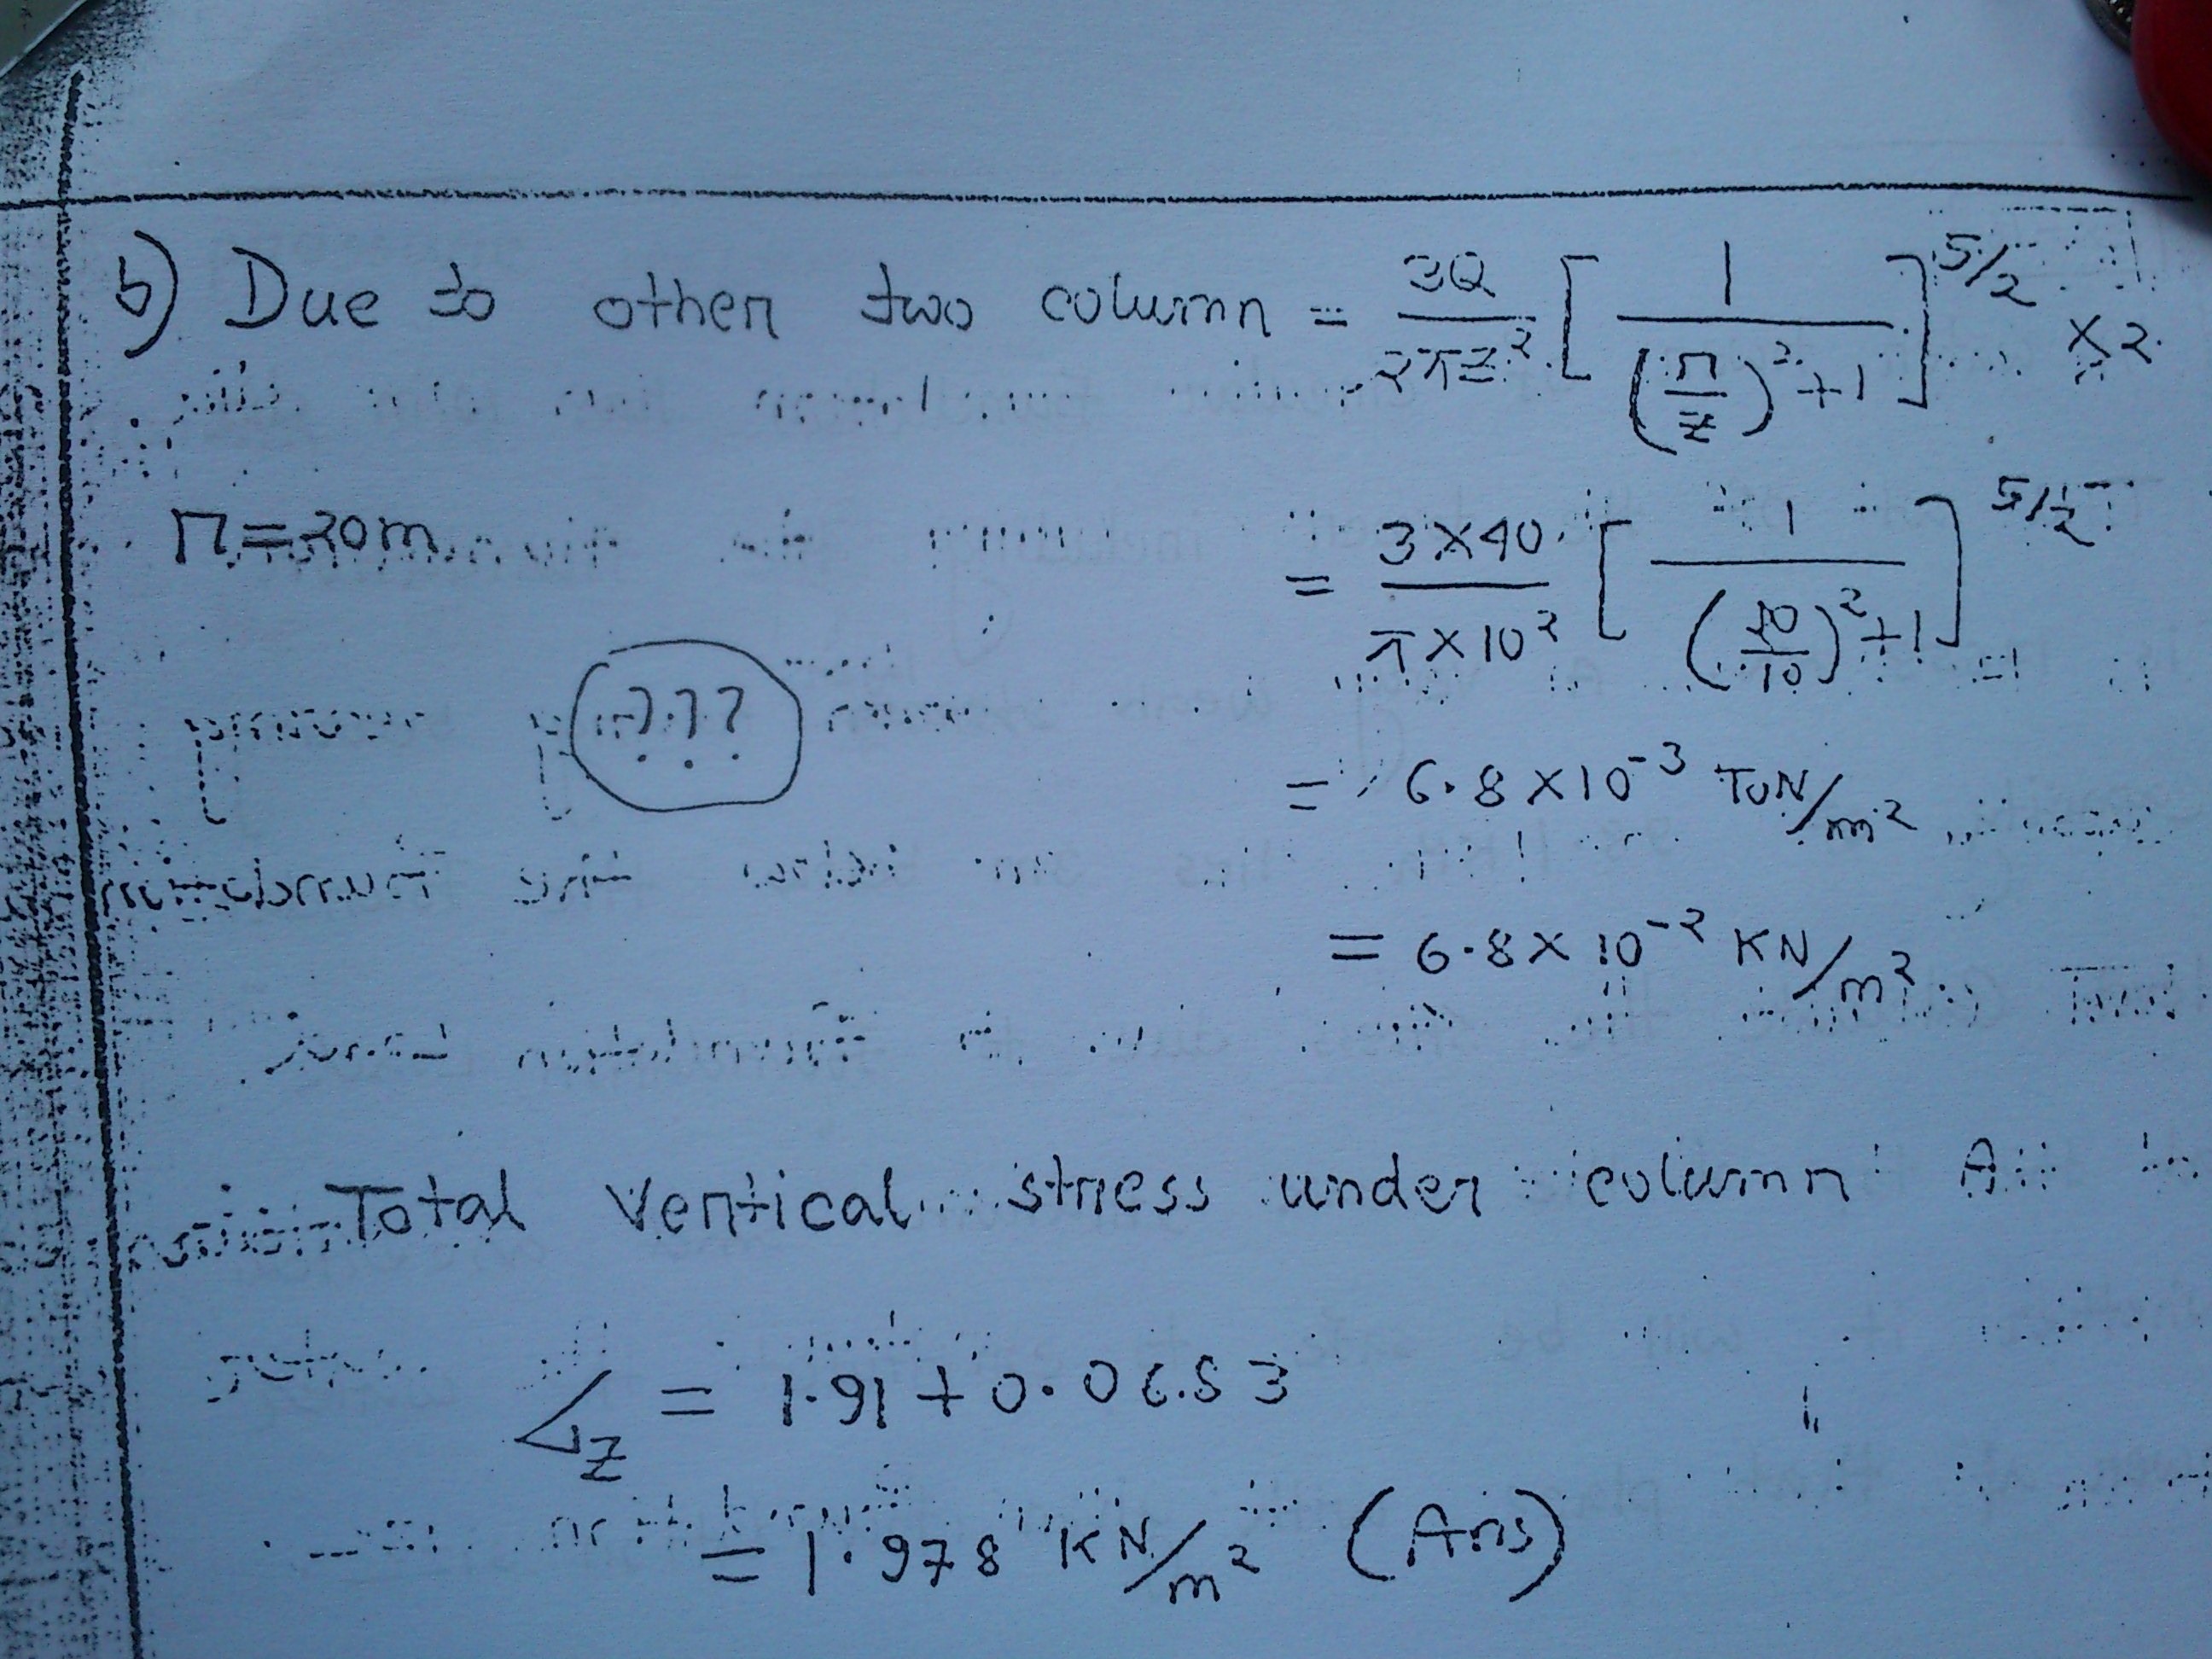 b) Due to other two column = 3Q/2πz² [1/((r/z)²+1)]^5/2 × 2
r = 20m
= 3×40/π×10² [1/((20/10)²+1)]^5/2
???
= 6.8×10⁻³ TON/m²
= 6.8×10⁻² KN/m²
Total Vertical stress under column A
= 1.91 + 0.0683
= 1.978 KN/m² (Ans)